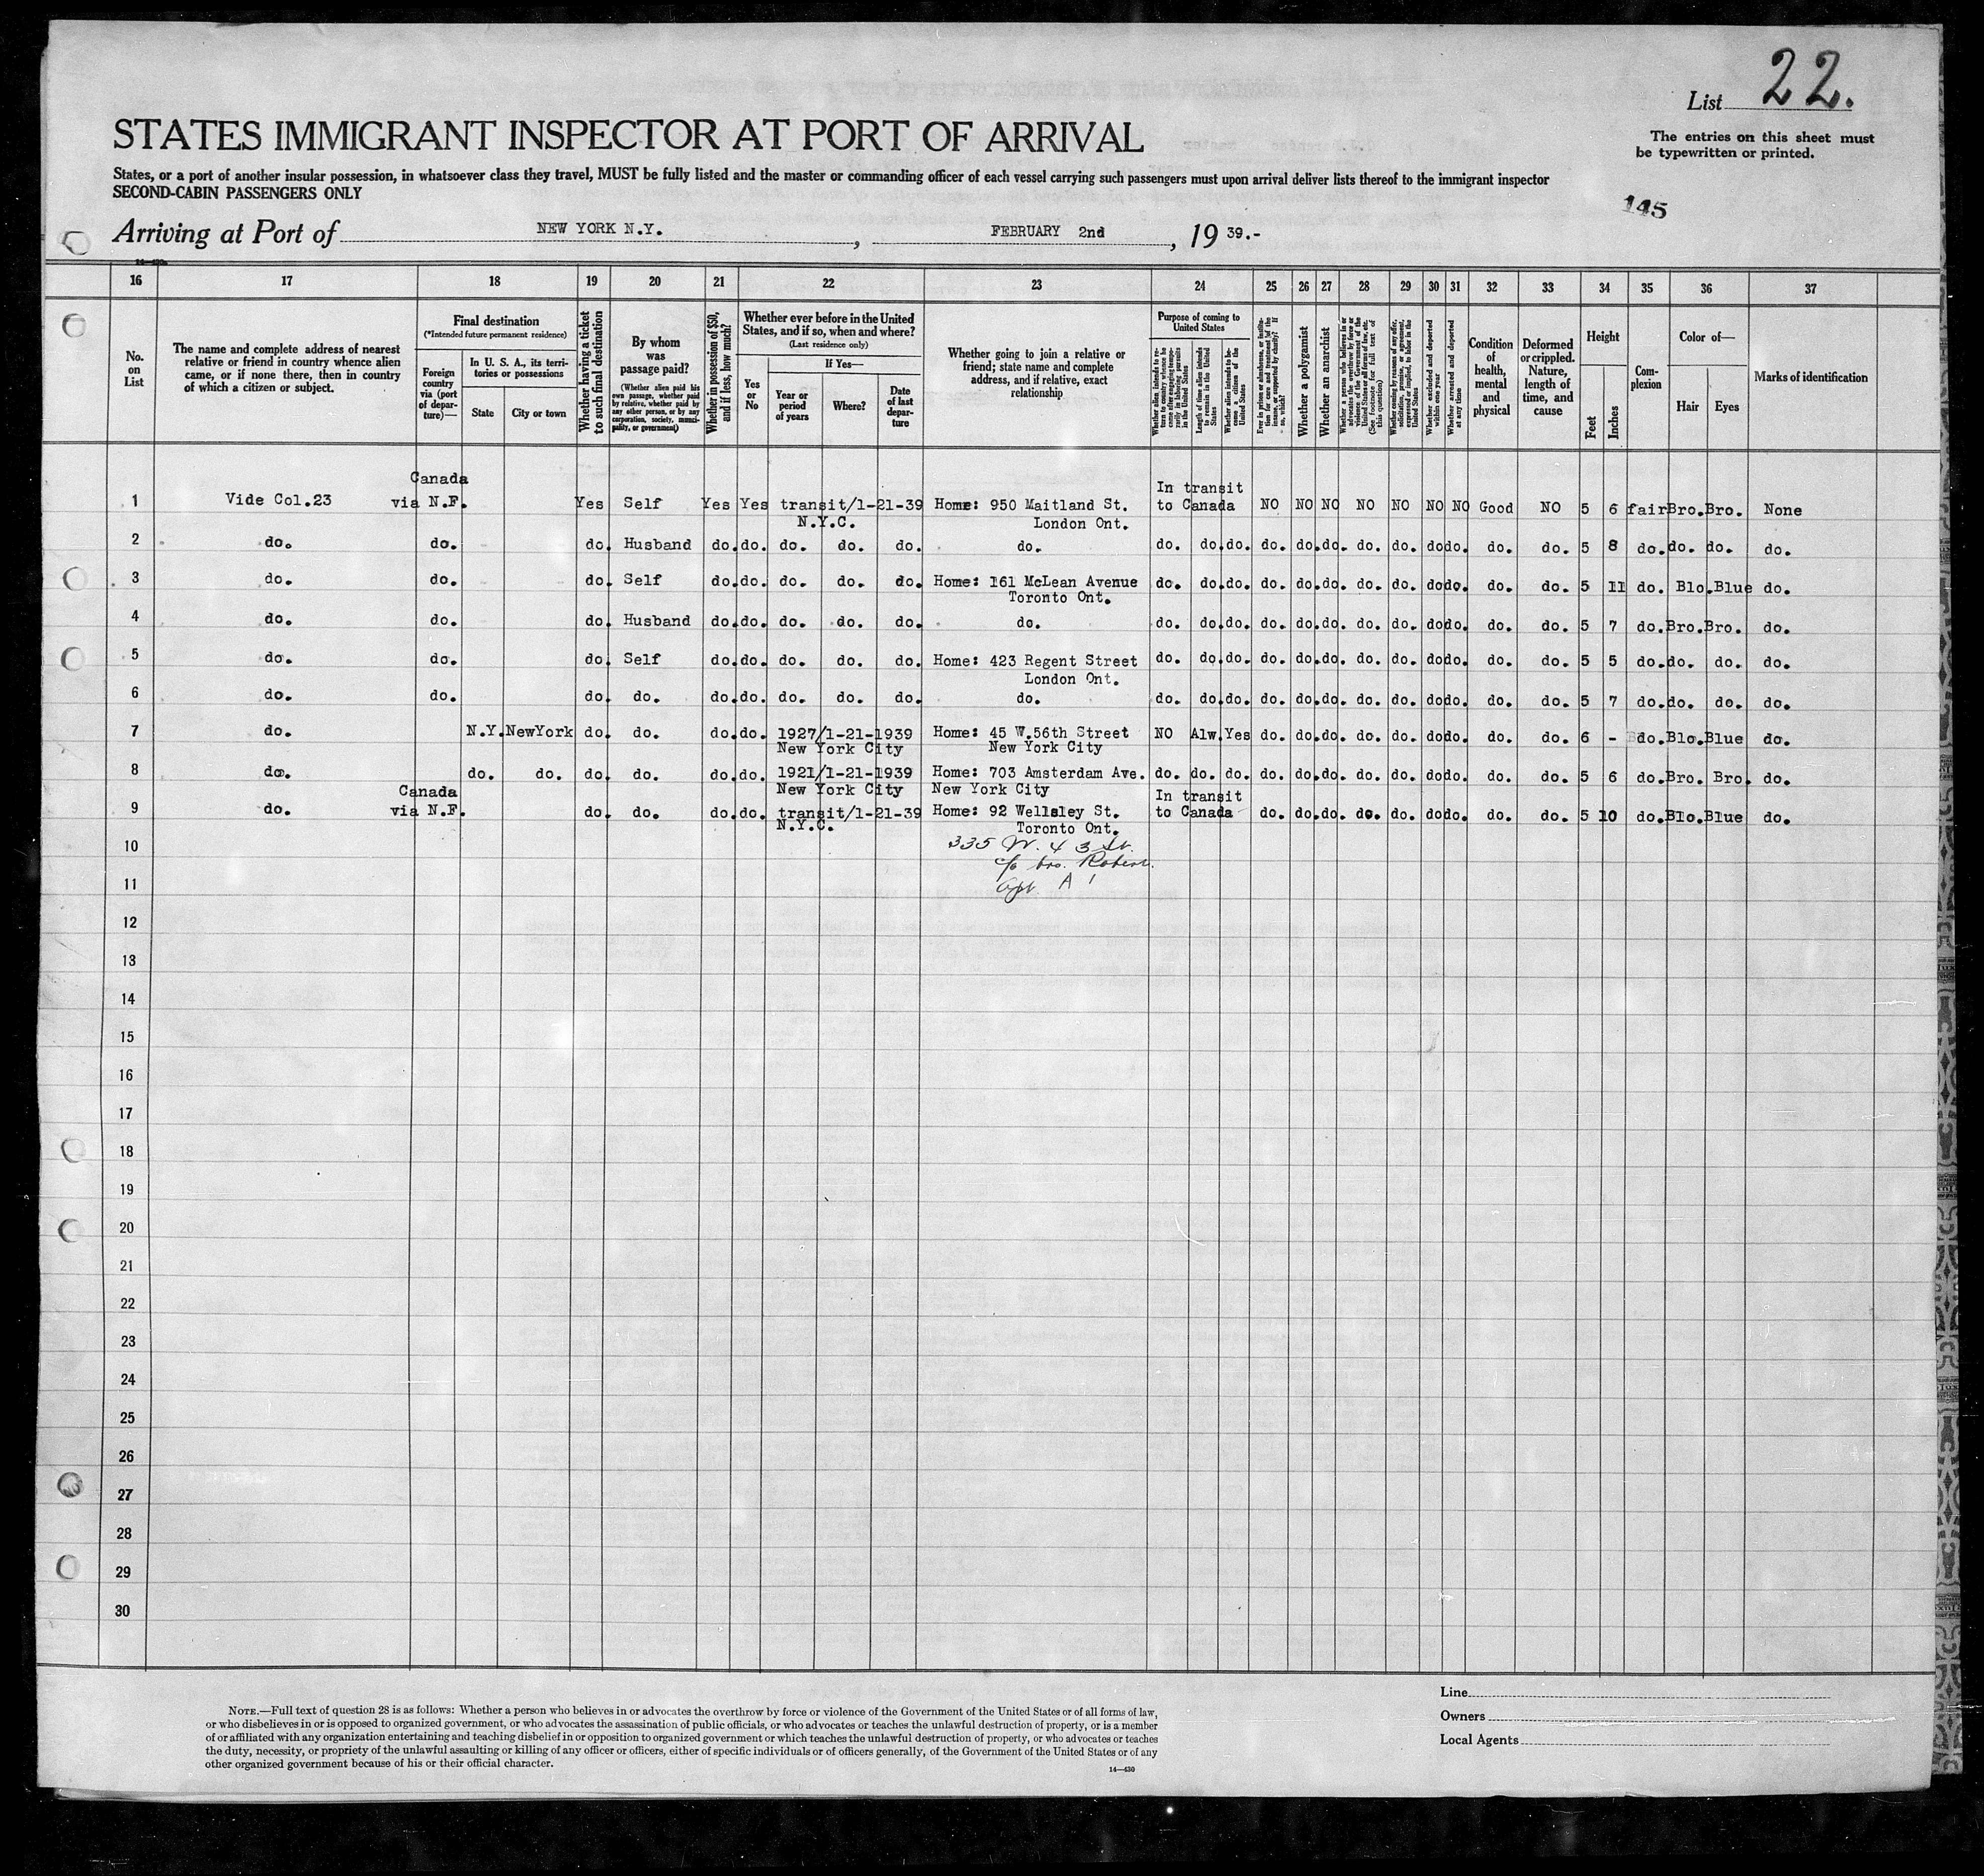 List 22.
STATES IMMIGRANT INSPECTOR AT PORT OF ARRIVAL
The entries on this sheet must
be typewritten or printed.
States, or a port of another insular possession, in whatsoever class they travel, MUST be fully listed and the master or commanding officer of each vessel carrying such passengers must upon arrival deliver lists thereof to the immigrant inspector
SECOND-CABIN PASSENGERS ONLY
145
Arriving at Port of NEW YORK N.Y. , FEBRUARY 2nd , 19 39.-
16 17 18 19 20 21 22 23 24 25 26 27 28 29 30 31 32 33 34 35 36 37
No. on List
The name and complete address of nearest relative or friend in country whence alien came, or if none there, then in country of which a citizen or subject.
Final destination
(*Intended future permanent residence)
Foreign country via (port of departure)—
In U. S. A., its territories or possessions
State
City or town
Whether having a ticket to such final destination
By whom was passage paid?
(Whether alien paid his own passage, whether paid by relative, whether paid by any other person, or by any corporation, society, municipality, or government)
Whether in possession of $50, and if less, how much?
Whether ever before in the United States, and if so, when and where?
(Last residence only)
Yes or No
If Yes—
Year or period of years
Where?
Date of last departure
Whether going to join a relative or friend; state name and complete address, and if relative, exact relationship
Purpose of coming to United States
Whether alien intends to return to country whence he came after engaging temporarily in laboring pursuits in the United States
Length of time alien intends to remain in the United States
Whether alien intends to become a citizen of the United States
Ever in prison or almshouse, or institution for care and treatment of the insane, or supported by charity? If so, which?
Whether a polygamist
Whether an anarchist
Whether a person who believes in or advocates the overthrow by force or violence of the Government of the United States or all forms of law, etc. (See footnote for full text of this question)
Whether coming by reason of any offer, solicitation, promise, or agreement, expressed or implied, to labor in the United States
Whether excluded and deported within one year
Whether arrested and deported at any time
Condition of health, mental and physical
Deformed or crippled. Nature, length of time, and cause
Height
Feet
Inches
Complexion
Color of—
Hair
Eyes
Marks of identification
1 Vide Col.23 Canada via N.F. Yes Self Yes Yes transit/1-21-39 N.Y.C. Home: 950 Maitland St. London Ont. In transit to Canada NO NO NO NO NO NO NO Good NO 5 6 fair Bro. Bro. None
2 do. do. do. Husband do. do. do. do. do. do. do. do. do. do. do. do. do. do. do. do. do. do. 5 8 do. do. do. do.
3 do. do. do. Self do. do. do. do. do. Home: 161 McLean Avenue Toronto Ont. do. do. do. do. do. do. do. do. do. do. do. do. 5 11 do. Blo. Blue do.
4 do. do. do. Husband do. do. do. do. do. do. do. do. do. do. do. do. do. do. do. do. do. do. 5 7 do. Bro. Bro. do.
5 do. do. do. Self do. do. do. do. do. Home: 423 Regent Street London Ont. do. do. do. do. do. do. do. do. do. do. do. do. 5 5 do. do. do. do.
6 do. do. do. do. do. do. do. do. do. do. do. do. do. do. do. do. do. do. do. do. do. do. 5 7 do. do. do. do.
7 do. N.Y. NewYork do. do. do. do. 1927/1-21-1939 New York City Home: 45 W.56th Street New York City NO Alw. Yes do. do. do. do. do. do. do. do. do. 6 - do. Blo. Blue do.
8 do. do. do. do. do. do. do. 1921/1-21-1939 New York City Home: 703 Amsterdam Ave. New York City do. do. do. do. do. do. do. do. do. do. do. do. 5 6 do. Bro. Bro. do.
9 do. Canada via N.F. do. do. do. do. transit/1-21-39 N.Y.C. Home: 92 Wellsley St. Toronto Ont. In transit to Canada do. do. do. do. do. do. do. do. do. 5 10 do. Blo. Blue do.
10 335 W. 43 St.
c/o bro. Robert.
11 Apt. A 1
12
13
14
15
16
17
18
19
20
21
22
23
24
25
26
27
28
29
30
NOTE.—Full text of question 28 is as follows: Whether a person who believes in or advocates the overthrow by force or violence of the Government of the United States or of all forms of law,
or who disbelieves in or is opposed to organized government, or who advocates the assassination of public officials, or who advocates or teaches the unlawful destruction of property, or is a member
of or affiliated with any organization entertaining and teaching disbelief in or opposition to organized government or which teaches the unlawful destruction of property, or who advocates or teaches
the duty, necessity, or propriety of the unlawful assaulting or killing of any officer or officers, either of specific individuals or of officers generally, of the Government of the United States or of any
other organized government because of his or their official character.
14—430
Line
Owners
Local Agents